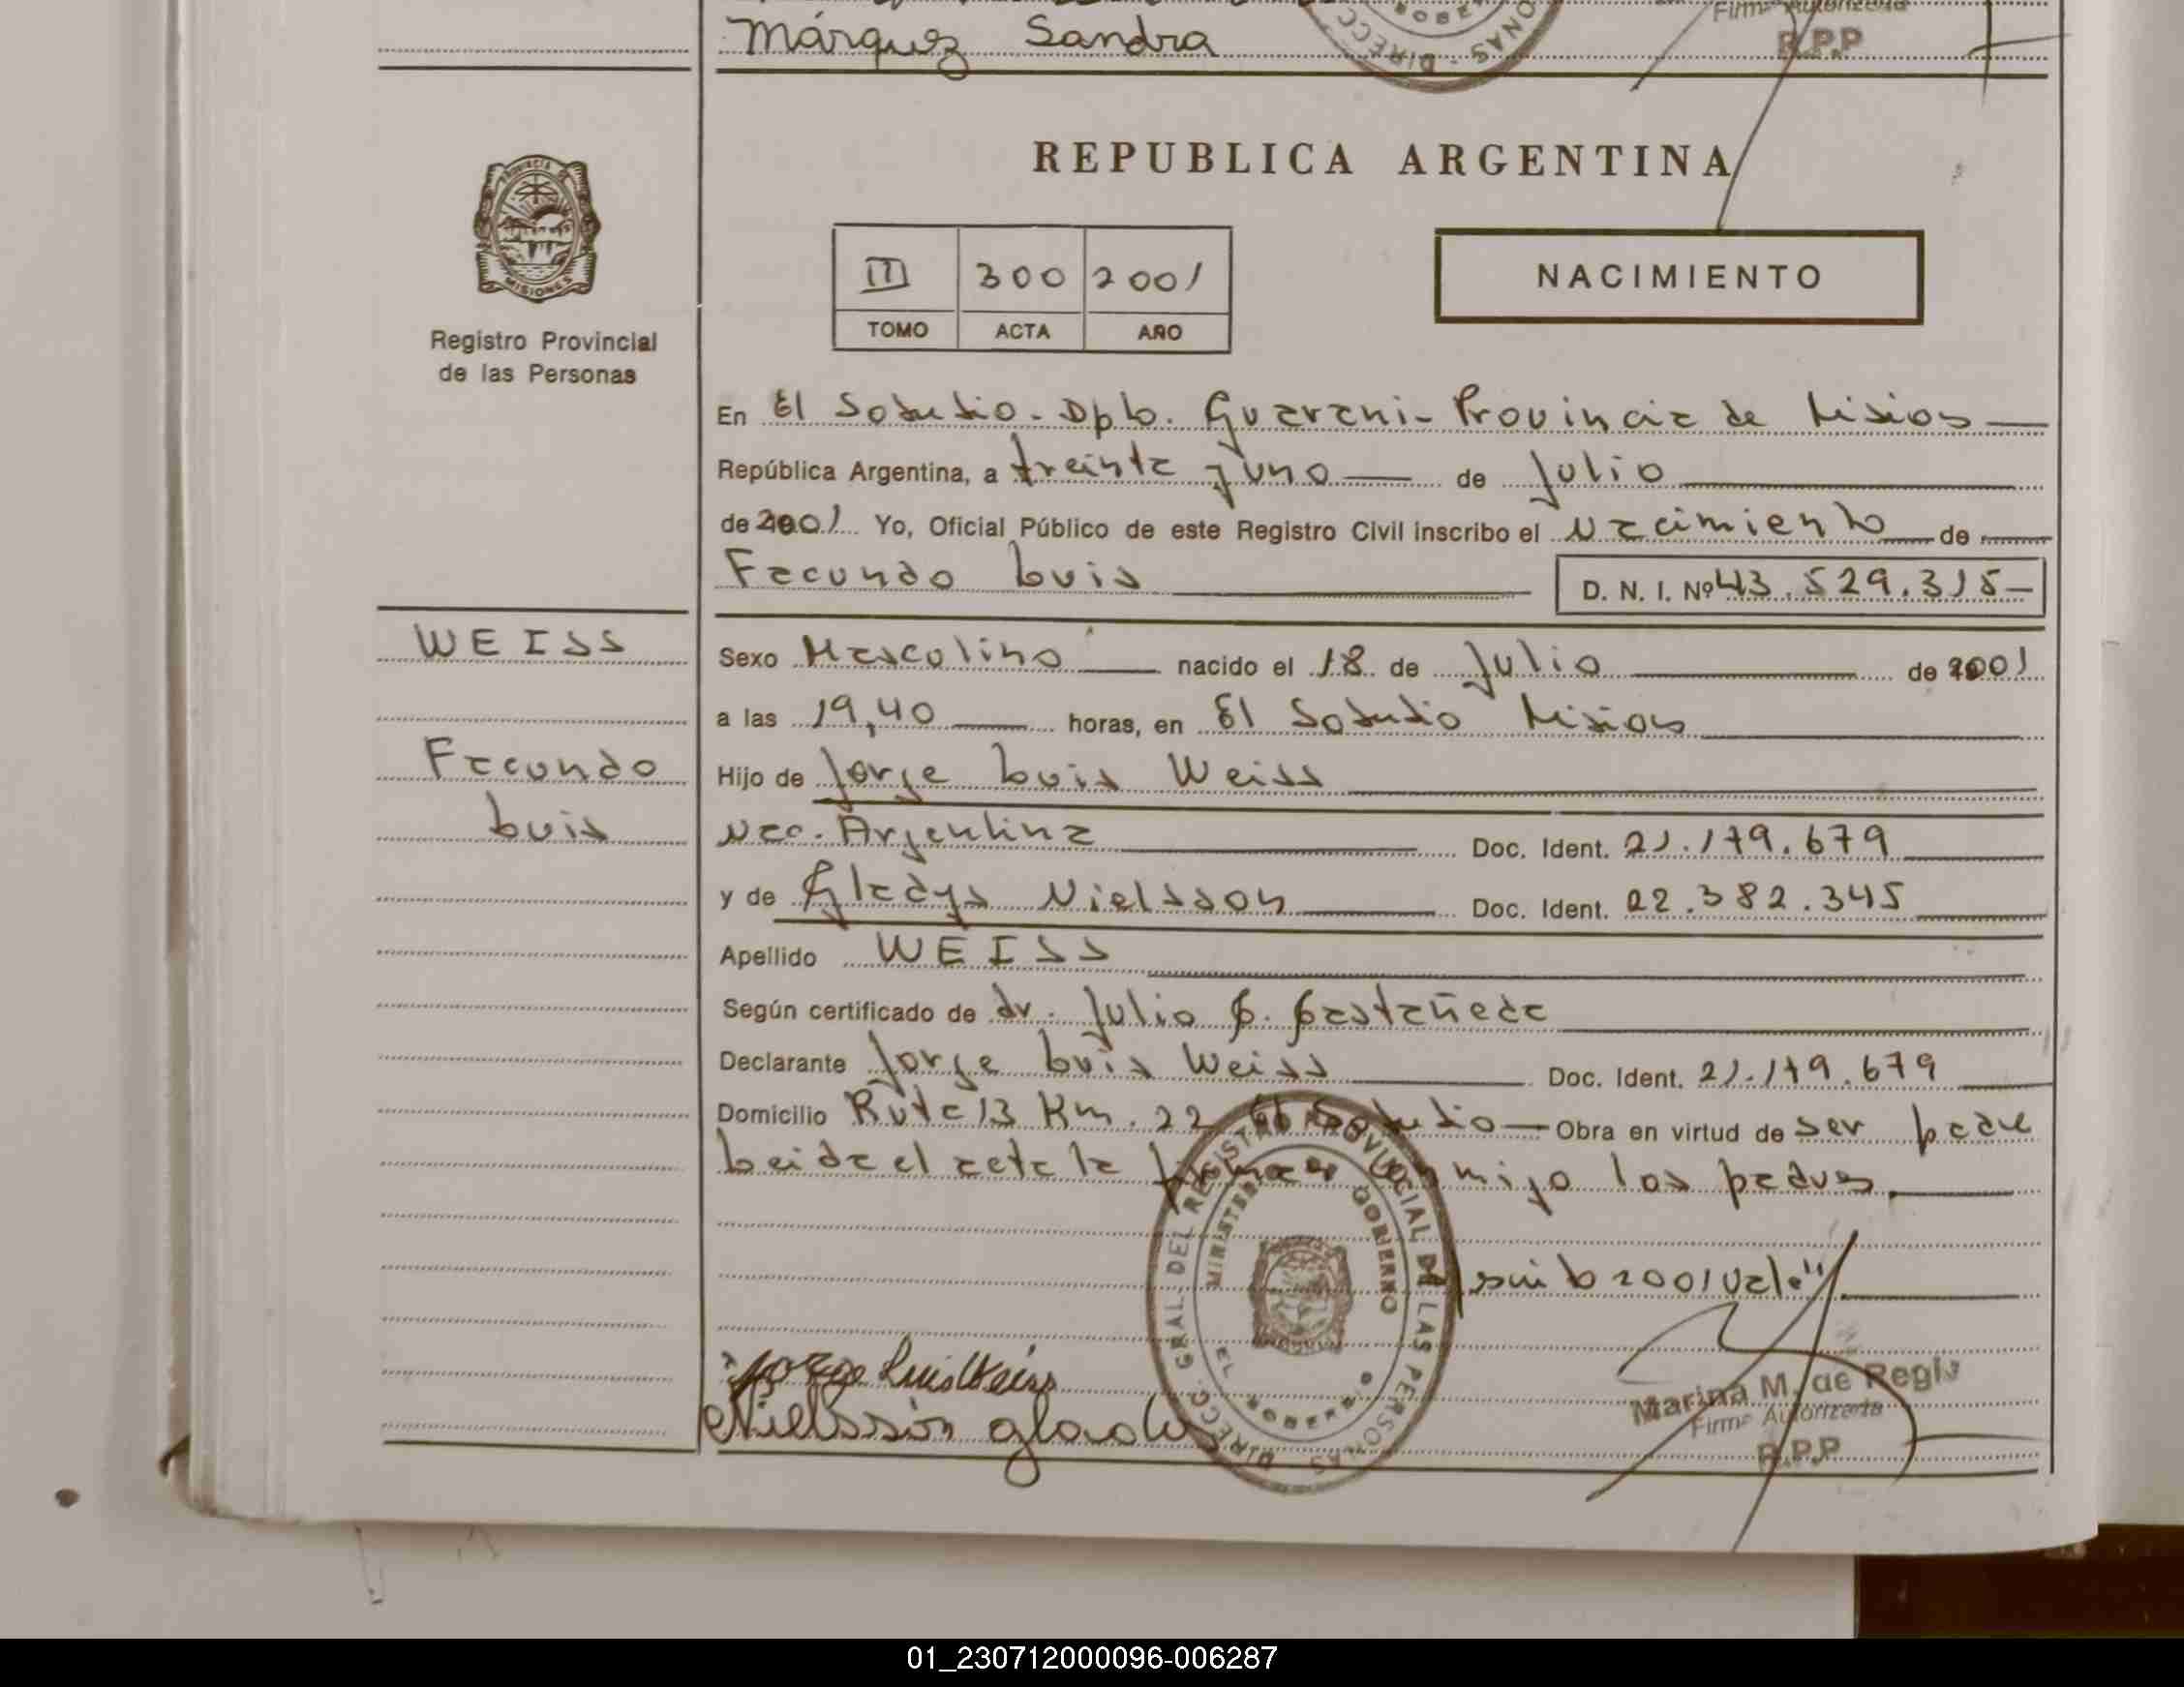 Márquez Sandra
Firma Autorizada
R.P.P
REPUBLICA ARGENTINA
PROVINCIA DE
MISIONES
Registro Provincial
de las Personas
III 300 2001
TOMO ACTA AÑO
NACIMIENTO
En El Soberbio - Dpto. Guarani - Provincia de Misiones
República Argentina, a treinta y uno de Julio
de 2001 Yo, Oficial Público de este Registro Civil inscribo el Nacimiento de
Facundo Luis D. N. I. Nº 43.529.315-
WEISS
Facundo
Luis
Sexo Masculino nacido el 18 de Julio de 2001
a las 19,40 horas, en El Soberbio Misiones
Hijo de Jorge Luis Weiss
Nac. Argentina Doc. Ident. 21.179.679
y de Gladys Nielsson Doc. Ident. 22.382.345
Apellido WEISS
Según certificado de dr. Julio C. Castañeda
Declarante Jorge Luis Weiss Doc. Ident. 21.179.679
Domicilio Ruta 13 Km. 22 El Soberbio Obra en virtud de ser padre
Leida el acta la firman conmigo los padres
2001 vale"
DIRECC. GRAL. DEL REGISTRO PROVINCIAL DE LAS PERSONAS
MINISTERIO DE GOBIERNO
EL SOBERBIO
Jorge Luis Weiss
Nielsson glady
Marina M. de Regis
Firma Autorizada
R.P.P
01_230712000096-006287